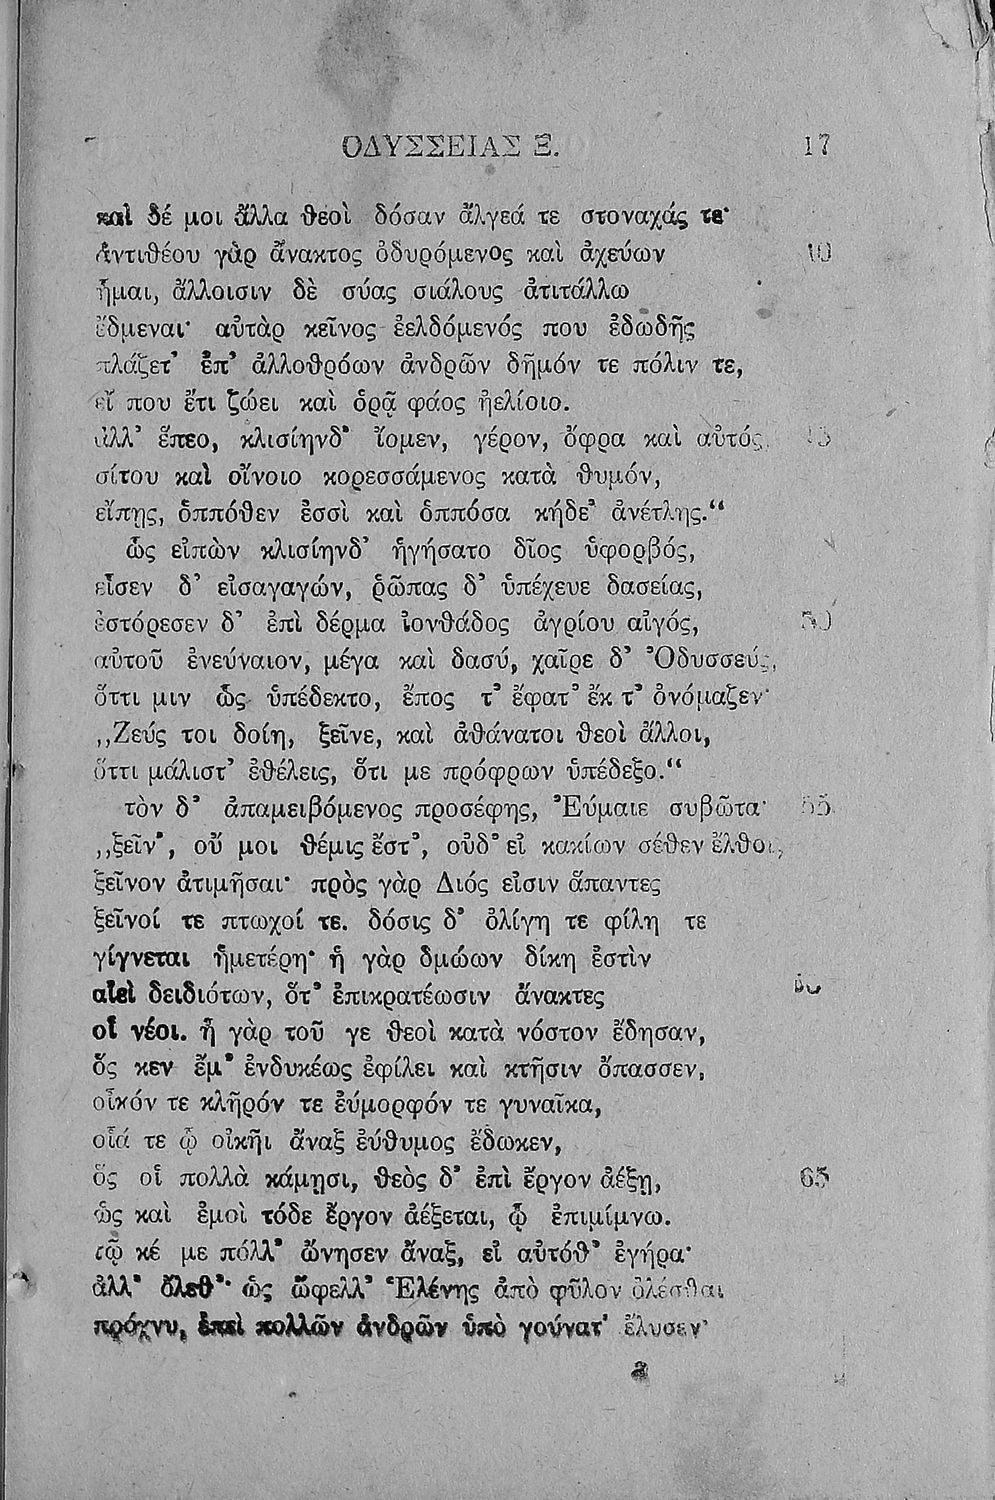 ΟΔΥΣΣΕΙΑΣ Ξ. 17
καὶ δέ μοι ἄλλα θεοὶ δόσαν ἄλγεά τε στοναχάς τε·
Ἀντιθέου γὰρ ἄνακτος ὀδυρόμενος καὶ ἀχεύων 40
ἧμαι, ἄλλοισιν δὲ σύας σιάλους ἀτιτάλλω
ἔδμεναι· αὐτὰρ κεῖνος ἐελδόμενός που ἐδωδῆς
πλάζετ’ ἐπ’ ἀλλοθρόων ἀνδρῶν δῆμόν τε πόλιν τε,
εἴ που ἔτι ζώει καὶ ὁρᾷ φάος ἠελίοιο.
ἀλλ’ ἕπεο, κλισίηνδ’ ἴομεν, γέρον, ὄφρα καὶ αὐτός, 45
σίτου καὶ οἴνοιο κορεσσάμενος κατὰ θυμόν,
εἴπῃς, ὁππόθεν ἐσσὶ καὶ ὁππόσα κήδε’ ἀνέτλης.“
ὣς εἰπὼν κλισίηνδ’ ἡγήσατο δῖος ὑφορβός,
εἷσεν δ’ εἰσαγαγών, ῥῶπας δ’ ὑπέχευε δασείας,
ἐστόρεσεν δ’ ἐπὶ δέρμα ἰονθάδος ἀγρίου αἰγός, 50
αὐτοῦ ἐνεύναιον, μέγα καὶ δασύ, χαῖρε δ’ Ὀδυσσεύς,
ὅττι μιν ὣς ὑπέδεκτο, ἔπος τ’ ἔφατ’ ἔκ τ’ ὀνόμαζεν·
„Ζεύς τοι δοίη, ξεῖνε, καὶ ἀθάνατοι θεοὶ ἄλλοι,
ὅττι μάλιστ’ ἐθέλεις, ὅτι με πρόφρων ὑπέδεξο.“
τὸν δ’ ἀπαμειβόμενος προσέφης, Ἐύμαιε συβῶτα· 55
„ξεῖν’, οὔ μοι θέμις ἔστ’, οὐδ’ εἰ κακίων σέθεν ἔλθοι,
ξεῖνον ἀτιμῆσαι· πρὸς γὰρ Διός εἰσιν ἅπαντες
ξεῖνοί τε πτωχοί τε. δόσις δ’ ὀλίγη τε φίλη τε
γίγνεται ἡμετέρη· ἡ γὰρ δμώων δίκη ἐστὶν
αἰεὶ δειδιότων, ὅτ’ ἐπικρατέωσιν ἄνακτες 60
οἳ νέοι. ἦ γὰρ τοῦ γε θεοὶ κατὰ νόστον ἔδησαν,
ὅς κεν ἔμ’ ἐνδυκέως ἐφίλει καὶ κτῆσιν ὄπασσεν,
οἶκόν τε κλῆρόν τε ἐύμορφόν τε γυναῖκα,
οἷά τε ᾧ οἰκῆι ἄναξ ἐύθυμος ἔδωκεν,
ὅς οἱ πολλὰ κάμῃσι, θεὸς δ’ ἐπὶ ἔργον ἀέξῃ, 65
ὡς καὶ ἐμοὶ τόδε ἔργον ἀέξεται, ᾧ ἐπιμίμνω.
τῷ κέ με πόλλ’ ὤνησεν ἄναξ, εἰ αὐτόθ’ ἐγήρα·
ἀλλ’ ὄλεθ’· ὡς ὤφελλ’ Ἑλένης ἀπὸ φῦλον ὀλέσθαι
πρόχνυ, ἐπεὶ πολλῶν ἀνδρῶν ὑπὸ γούνατ’ ἔλυσεν·